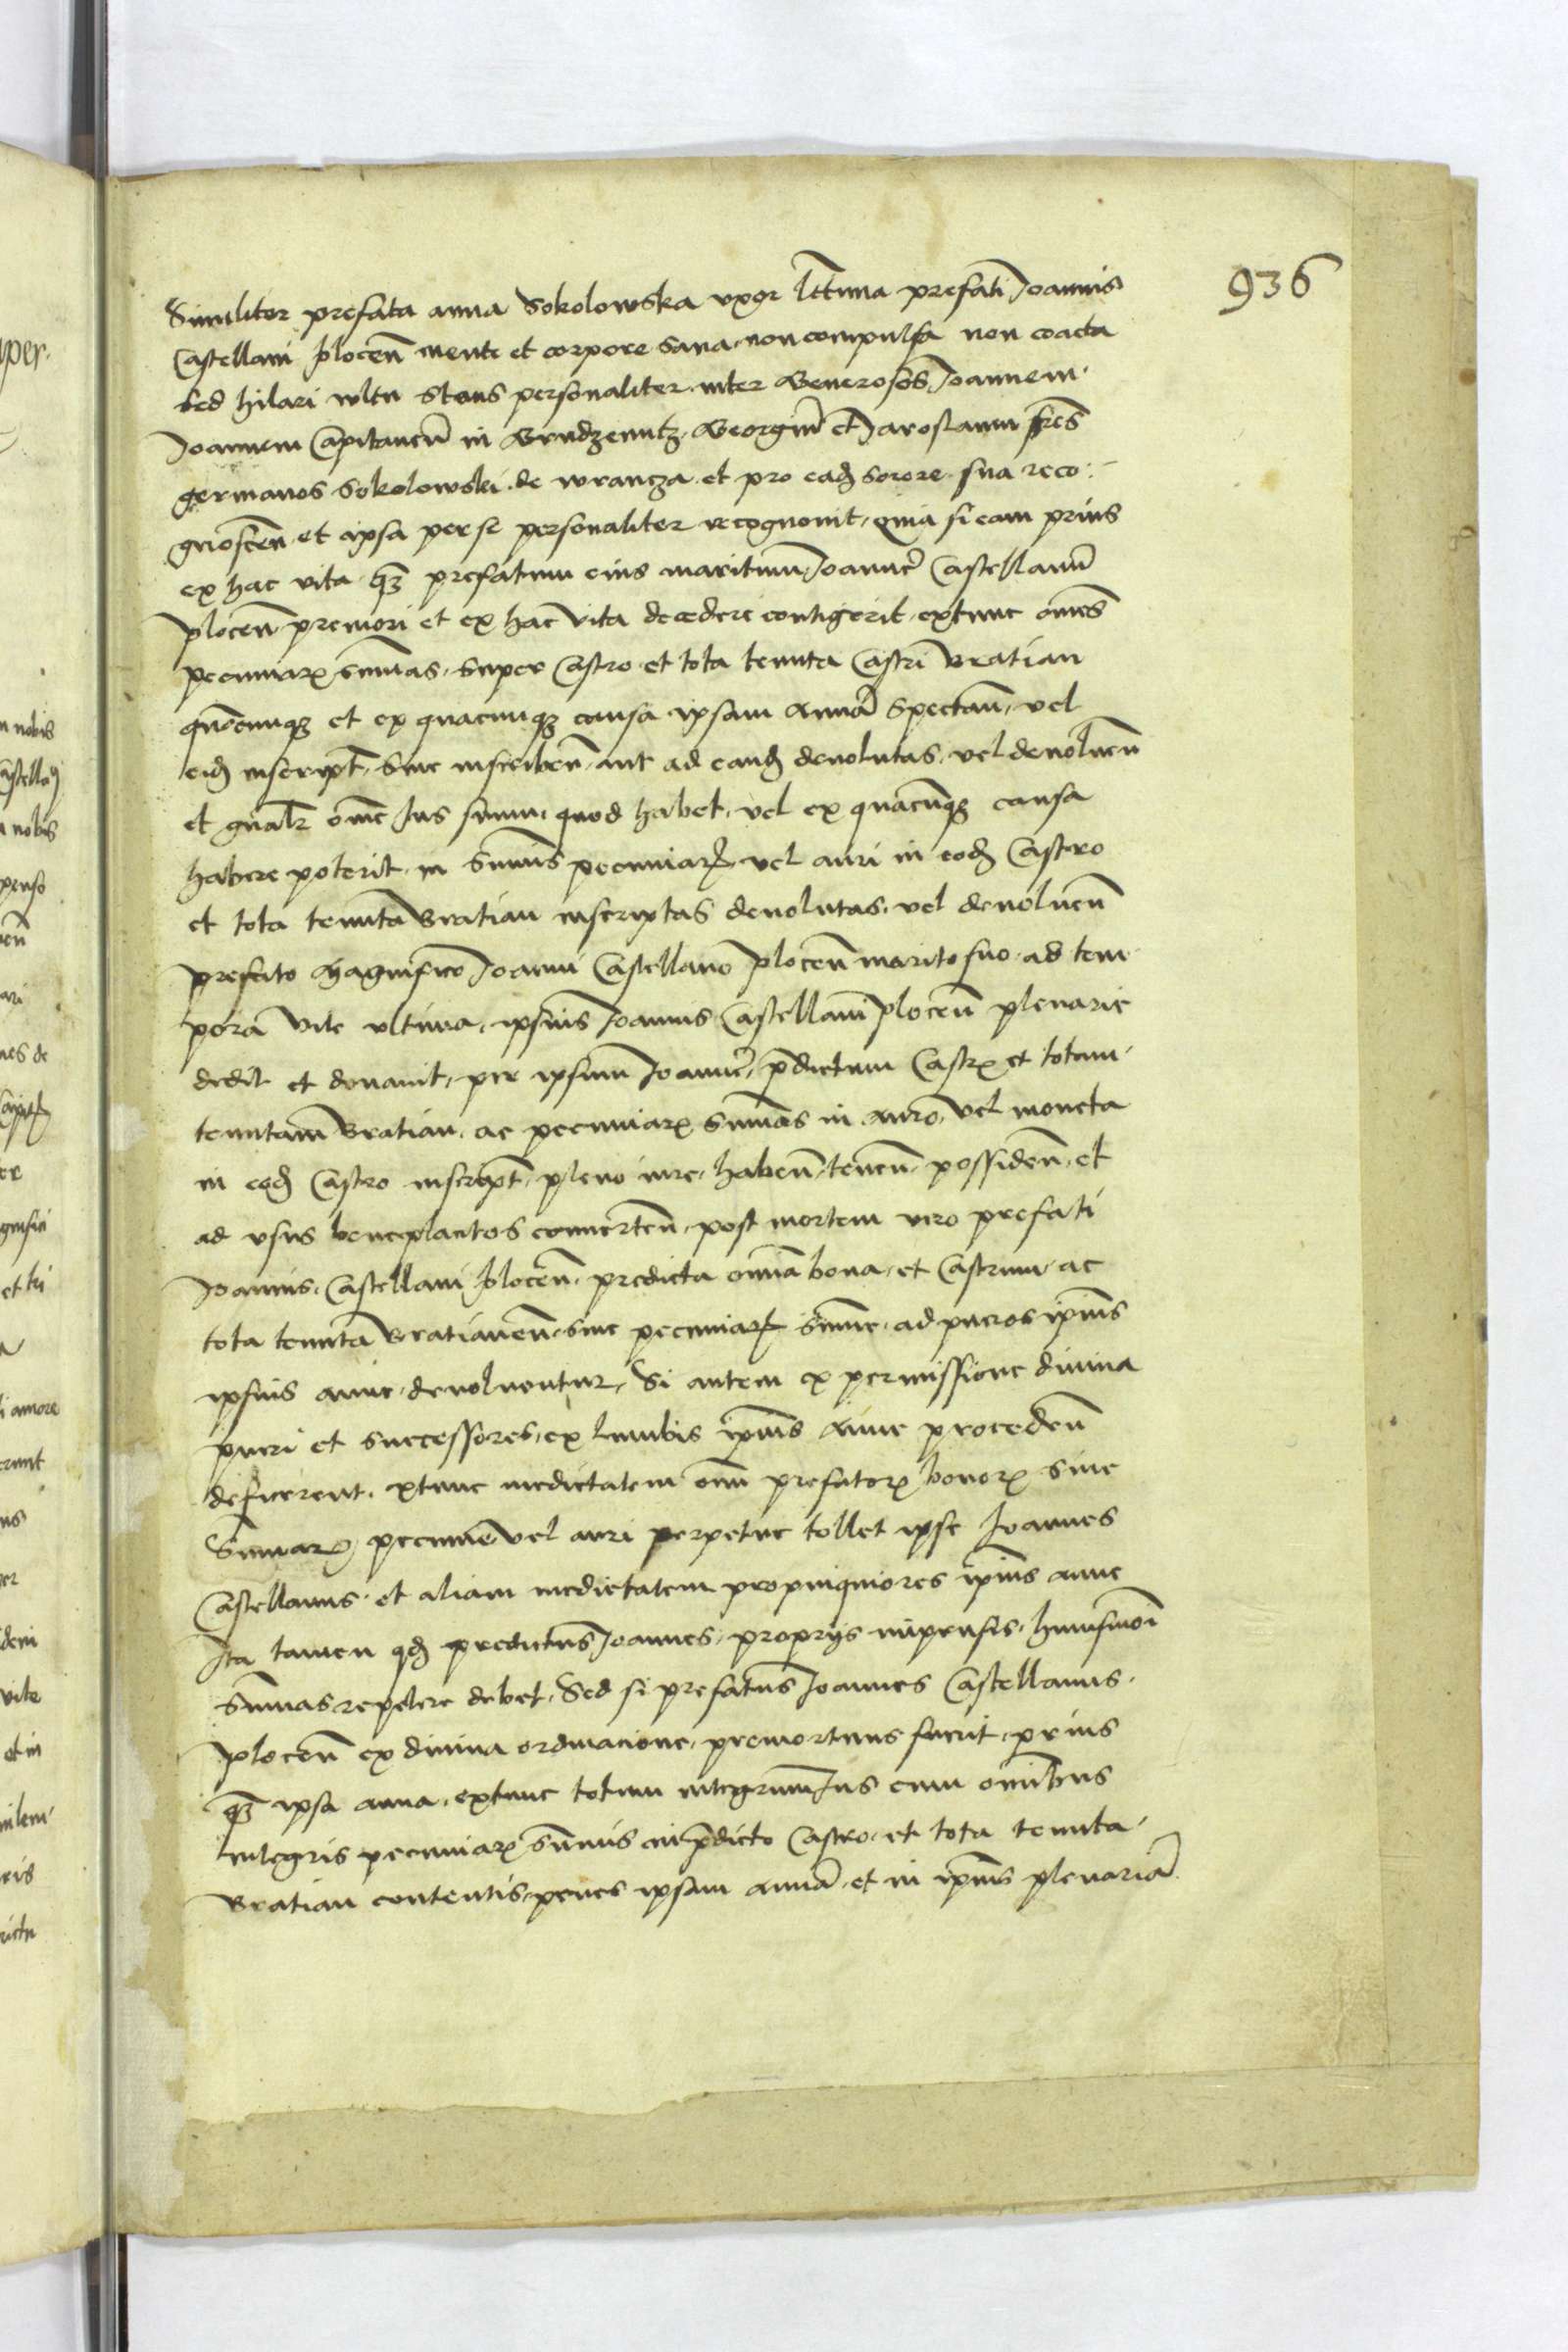 936
Similiter prefata anna Sokolowska uxor lttima prefati Joannis
Castellani plocen̄ mente et corpore sana, non compulsa non coacta
sed hilari wltu stans personaliter inter Generosos Joannem.
Joannem Capitaneū in Grudzenntz. Georgiū et Jaroslaum fres
germanos Sokolowski de wrancza et pro eadȝ sorore sua reco-
gnoscen̄ et ipsa per se personaliter recognouit, quia si eam prius
ex hac vita qȝ prefatum eius maritum Joannē Castellanū
plocen̄ premori et ex hac vita decedere contigerit, extunc om̄es
pecuniarꝝ summas, super Castro et tota tenuta Castri Bratian
quōcunqȝ et ex quacunqȝ causa ipsam Annā spectan̄, vel
eidȝ inscript̄, siue inscriben̄, aut ad eandȝ deuolutas, vel deuoluen̄
et gnalr̄ om̄e Jus suum, quod habet, vel ex quacūqȝ causa
habere poterit in sūmis pecuniarꝝ vel auri in eodȝ Castro
et tota tenuta Bratian inscriptas deuolutas, vel deuoluen̄
prefato Magnifico Joanni Castellano plocen̄ marito suo, ad tem-
pora vite ultima, ipsius Joannis Castellani plocen̄ plenarie
dedit et donauit, per ipsum Joannē, p̄dictum Castrꝝ et totam
tenutam Bratian, ac pecuniarꝝ summas in auro vel moneta
in eodȝ Castro inscript̄, pleno iure, haben̄, tenen̄, possiden̄, et
ad usus beneplacitos conuerten̄, post mortem vero prefati
Joannis Castellani plocen̄, predicta omnia bona, et Castrum, ac
tota tenuta Bratianen̄, siue pecuniarꝝ summe, ad pueros ipsius
ipsius anne, deuoluentur, Si autem ex permissione diuina
pueri et successores, ex lumbis ipsius Anne proceden̄
deficerent, extunc medietatem om̄ prefatorꝝ bonorꝝ siue
Summarꝝ pecunie vel auri perpetue tollet ipse Joannes
Castellanus, et aliam medietatem propinquiores ipsius anne
Ita tamen qȝ predictus Joannes, proprijs impensis, huiusmoī
summas repetere debet, Sed si prefatus Joannes Castellanus.
plocen̄ ex diuina ordinacione, premortuus fuerit, prius
qȝ ipsa anna, extunc totum integrum Jus cum om̄ibus
integris pecuniarꝝ summis in p̄dicto Castro, et tota tenuta
Bratian contentis, penes ipsam annā, et in ipsius plenariā